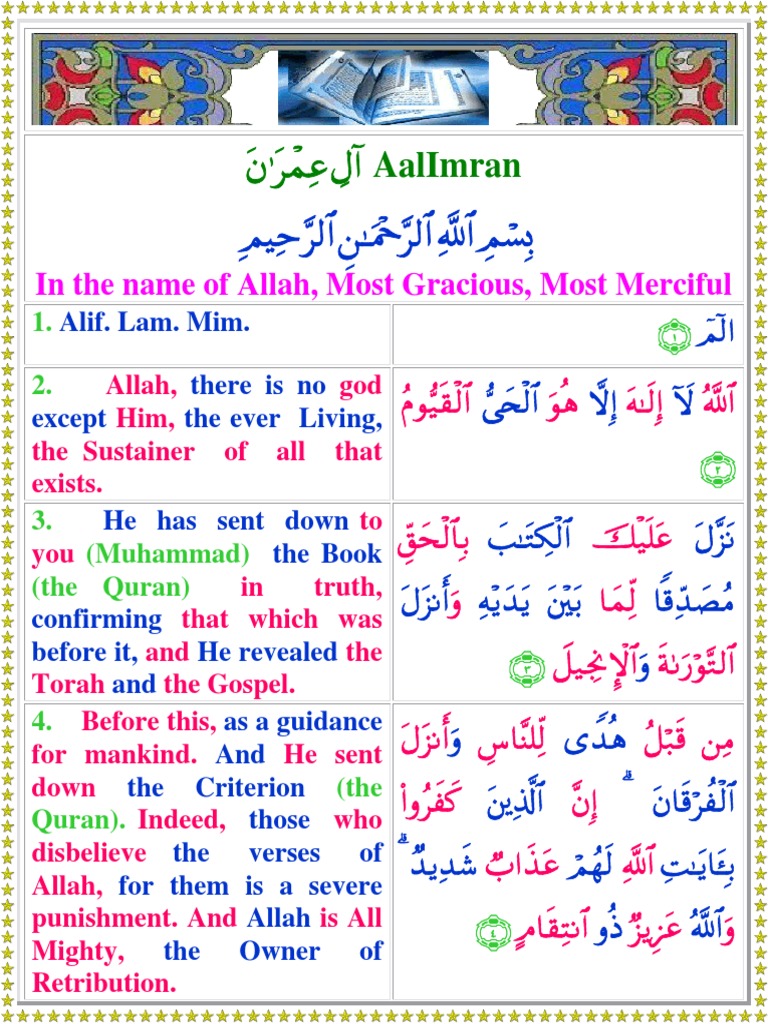 آلِ عِمْرَٰنَ AalImran
بِسْمِ ٱللَّهِ ٱلرَّحْمَـٰنِ ٱلرَّحِيمِ
In the name of Allah, Most Gracious, Most Merciful
1. Alif. Lam. Mim.
الٓمٓ ﴿١﴾
2. Allah, there is no god
except Him, the ever Living,
the Sustainer of all that
exists.
ٱللَّهُ لَآ إِلَـٰهَ إِلَّا هُوَ ٱلْحَىُّ ٱلْقَيُّومُ
﴿٢﴾
3. He has sent down to
you (Muhammad) the Book
(the Quran) in truth,
confirming that which was
before it, and He revealed the
Torah and the Gospel.
نَزَّلَ عَلَيْكَ ٱلْكِتَـٰبَ بِٱلْحَقِّ
مُصَدِّقًا لِّمَا بَيْنَ يَدَيْهِ وَأَنزَلَ
ٱلتَّوْرَىٰةَ وَٱلْإِنجِيلَ ﴿٣﴾
4. Before this, as a guidance
for mankind. And He sent
down the Criterion (the
Quran). Indeed, those who
disbelieve the verses of
Allah, for them is a severe
punishment. And Allah is All
Mighty, the Owner of
Retribution.
مِن قَبْلُ هُدًى لِّلنَّاسِ وَأَنزَلَ
ٱلْفُرْقَانَ ۗ إِنَّ ٱلَّذِينَ كَفَرُوا۟
بِـَٔايَـٰتِ ٱللَّهِ لَهُمْ عَذَابٌ شَدِيدٌ ۗ
وَٱللَّهُ عَزِيزٌ ذُو ٱنتِقَامٍ ﴿٤﴾